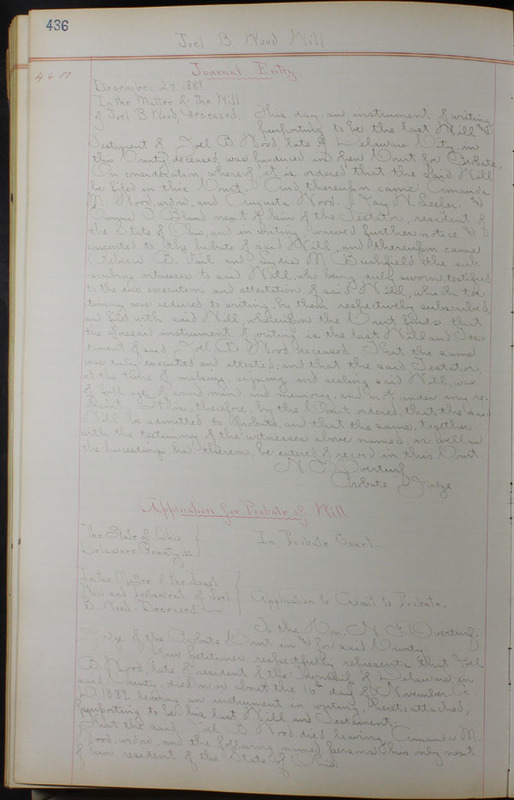 436
Joel B Wood Will
Journal Entry
December 27 1889
In the Matter of the Will
of Joel B Wood, Deceased. This day an instrument of writing
purporting to be the last Will and
Testament of Joel B Wood, late of Delaware City, in
this County deceased, was produced in open Court for Probate.
On consideration whereof, it is ordered that the said Will
be filed in this Court. And thereupon came Amanda
M. Wood, widow, and Augusta Wood,
next of kin of the Testator, resident of
the State of Ohio, and in writing waived further notice &
consented to the probate of said Will, and thereupon came
B. Vail and Lydia M. Bushfield the sub-
scribing witnesses to said Will, who being duly sworn testified
to the due execution and attestation of said Will, which tes-
timony was reduced to writing, by them respectively subscribed,
and filed with said Will, whereupon the Court finds that
the foresaid instrument of writing is the last Will and Tes-
tament of said Joel B. Wood deceased. That the same
was duly executed and attested; and that the said Testator,
at the time of making, signing and sealing said Will, was
of full age, of sound mind and memory, and not under any re-
straint. It is therefore, by the Court ordered, that the said
Will be admitted to Probate, and that the same, together
with the testimony of the witnesses above named, as well as
the proceedings had therein, be entered of record in this Court.
N. F. Overturf
Probate Judge
Application for Probate of Will
The State of Ohio
Delaware County, ss
In Probate Court.
In the Matter of the Last
Will and Testament of Joel
B. Wood Deceased
Application to Admit to Probate.
To the Hon. N. F. Overturf,
Judge of the Probate Court in and for said County
Your petitioner respectfully represents that Joel
B. Wood, late a resident of the Township of Delaware, in
said County, died on or about the 10th day of November A.
D. 1889 leaving an instrument in writing, hereto attached,
purporting to be his last Will and Testament;
That the said Joel B Wood died leaving Amanda M.
Wood, widow, and the following named persons his only next
of kin resident of the State of Ohio